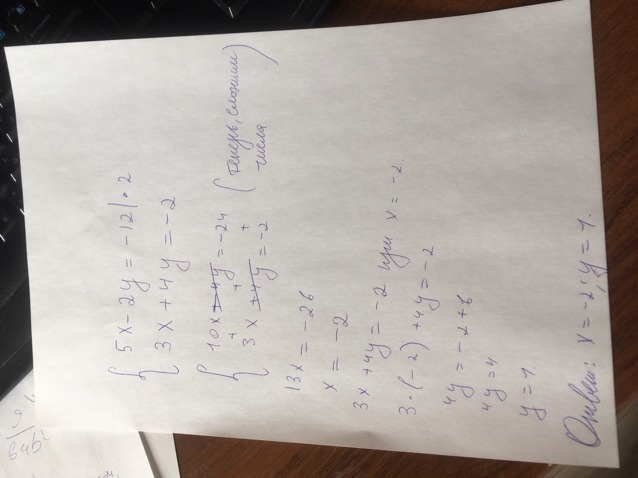 5x-2y=-12|·2
3x+4y=-2
10x-4y=-24
+ + +
3x+4y=-2
(теперь, сложим числа)
13x=-26
x=-2
3x+4y=-2 при x=-2
3·(-2)+4y=-2
4y=-2+6
4y=4
y=1.
Ответ: x=-2; y=1.